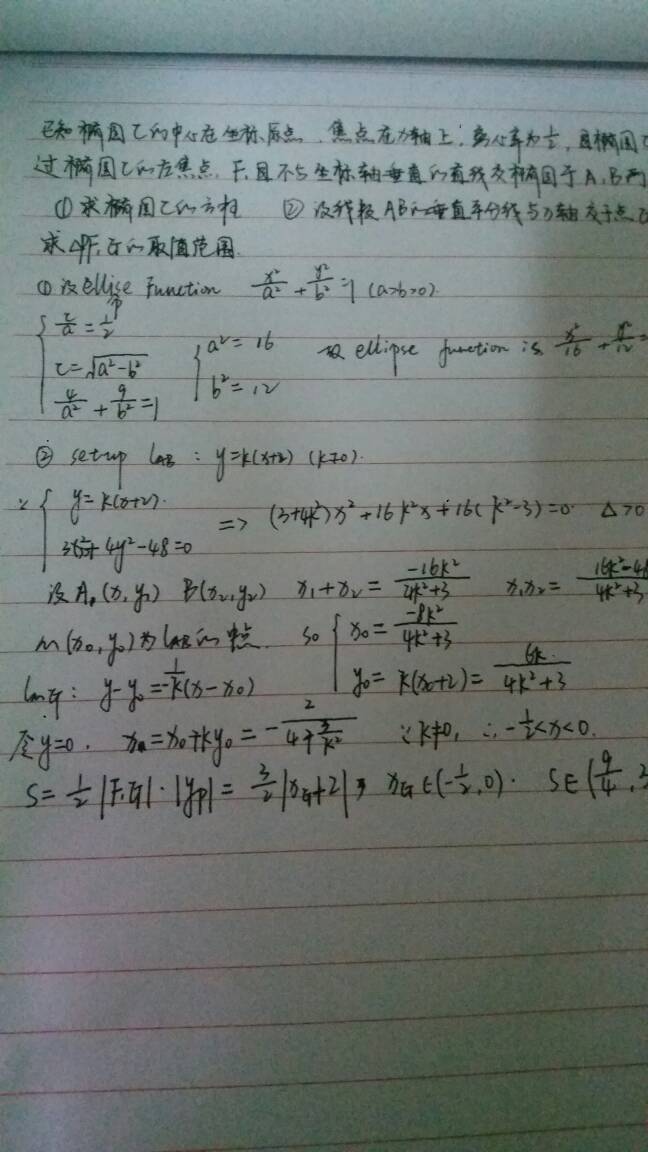 已知椭圆C的中心在坐标原点,焦点在x轴上,离心率为½,且椭圆C
过椭圆C的左焦点F₁且不与坐标轴垂直的直线交椭圆于A,B两
①求椭圆C的方程 ②设线段AB的垂直平分线与x轴交于点G
求△PF₁G的取值范围.
①设ellise Function x²/a² + y²/b² = 1 (a>b>0).
{ c/a = 1/2
c = √(a²-b²)
4/a² + 9/b² = 1
{ a² = 16
b² = 12
故 ellipse function is x²/16 + y²/12 =
② set up l_AB : y=k(x+2) (k≠0).
∵ { y=k(x+2).
3x² + 4y²-48=0
=> (3+4k²)x² + 16k²x + 16(k²-3)=0. Δ>0
设A(x₁,y₁) B(x₂,y₂) x₁+x₂ = -16k²/(4k²+3) x₁x₂ = 16k²-48/4k²+3
M(x₀,y₀)为l_AB的中点. so { x₀ = -8k²/(4k²+3)
y₀ = k(x₀+2) = 6k/(4k²+3)
l_MG: y-y₀ = -1/k(x-x₀)
令y=0. x_G=x₀+ky₀ = -2/(4+3/k²) ∵k≠0, ∴ -½<x<0.
S = ½|F₁G|·|y_P| = 3/2|x_G+2|, x_G∈(-½,0). S∈(9/4, 3